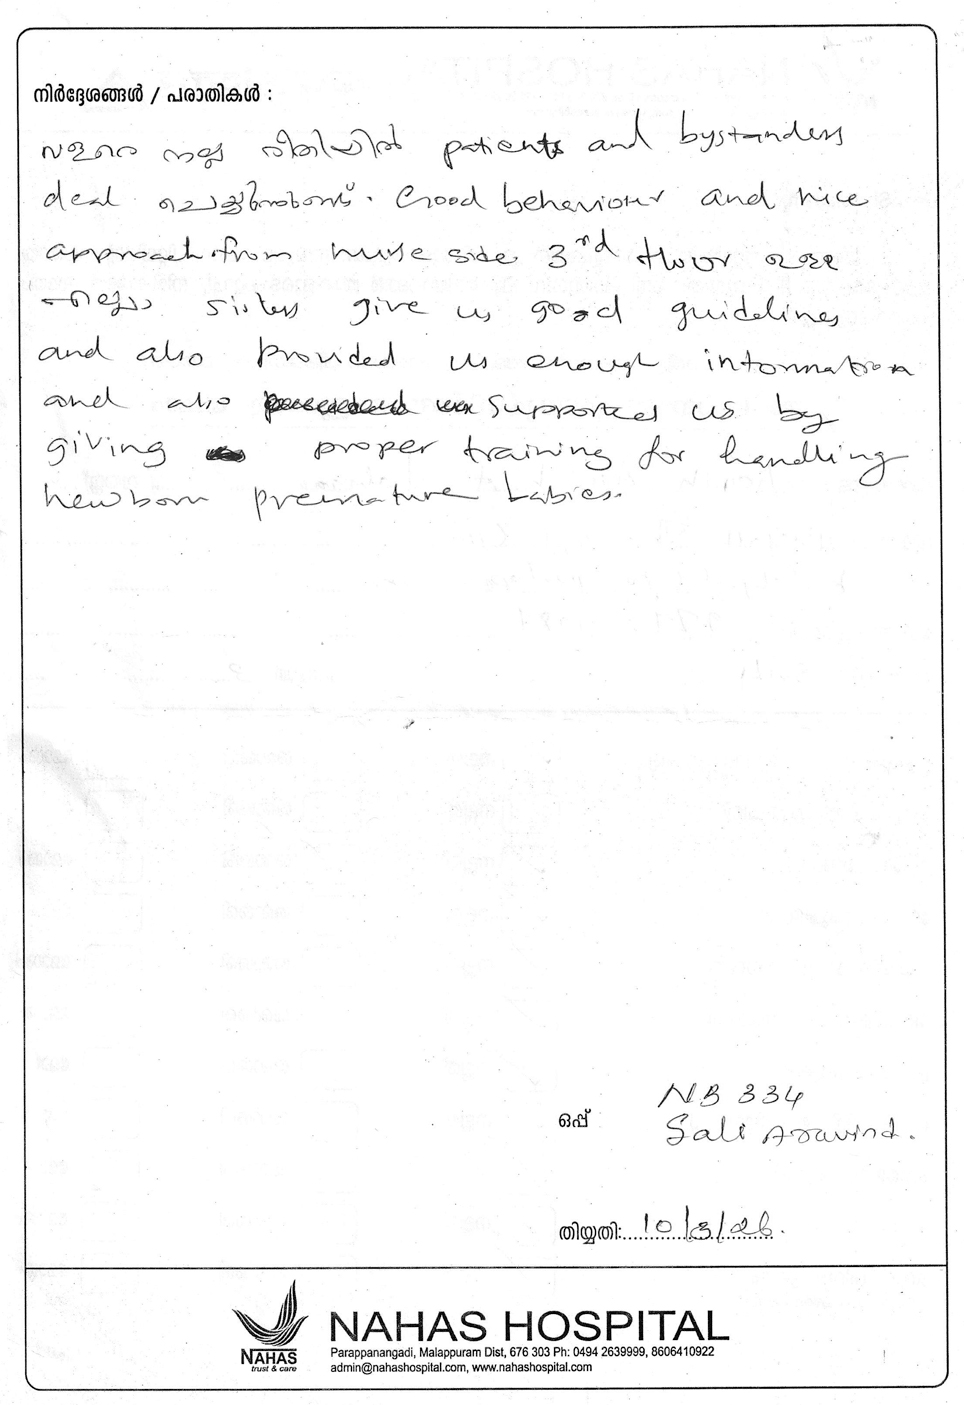 നിർദ്ദേശങ്ങൾ / പരാതികൾ :
വളരെ നല്ല രീതിയിൽ patients and bystanders
deal ചെയ്യുന്നുണ്ട്. Good behaviour and nice
approach from nurse side 3rd floor ഉള്ള
എല്ലാ sisters give us good guidelines
and also provided us enough information
and also supported us by
giving proper training for handling
newborn premature babies.
NB 334
ഒപ്പ്
Aravind.
തിയ്യതി:...10/3/26.
NAHAS HOSPITAL
NAHAS
trust & care
Parappanangadi, Malappuram Dist, 676 303 Ph: 0494 2639999, 8606410922
admin@nahashospital.com, www.nahashospital.com